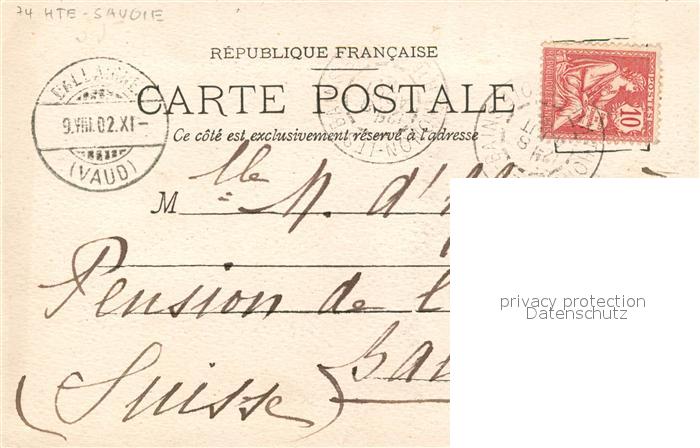 74 HTE-SAVOIE
RÉPUBLIQUE FRANÇAISE
CARTE POSTALE
Ce côté est exclusivement réservé à l'adresse
BALLAIGUES
9.VIII.02.XI-
(VAUD)
POSTES
10
M lle M. d'
Pension de l
(Suisse)
privacy protection
Datenschutz